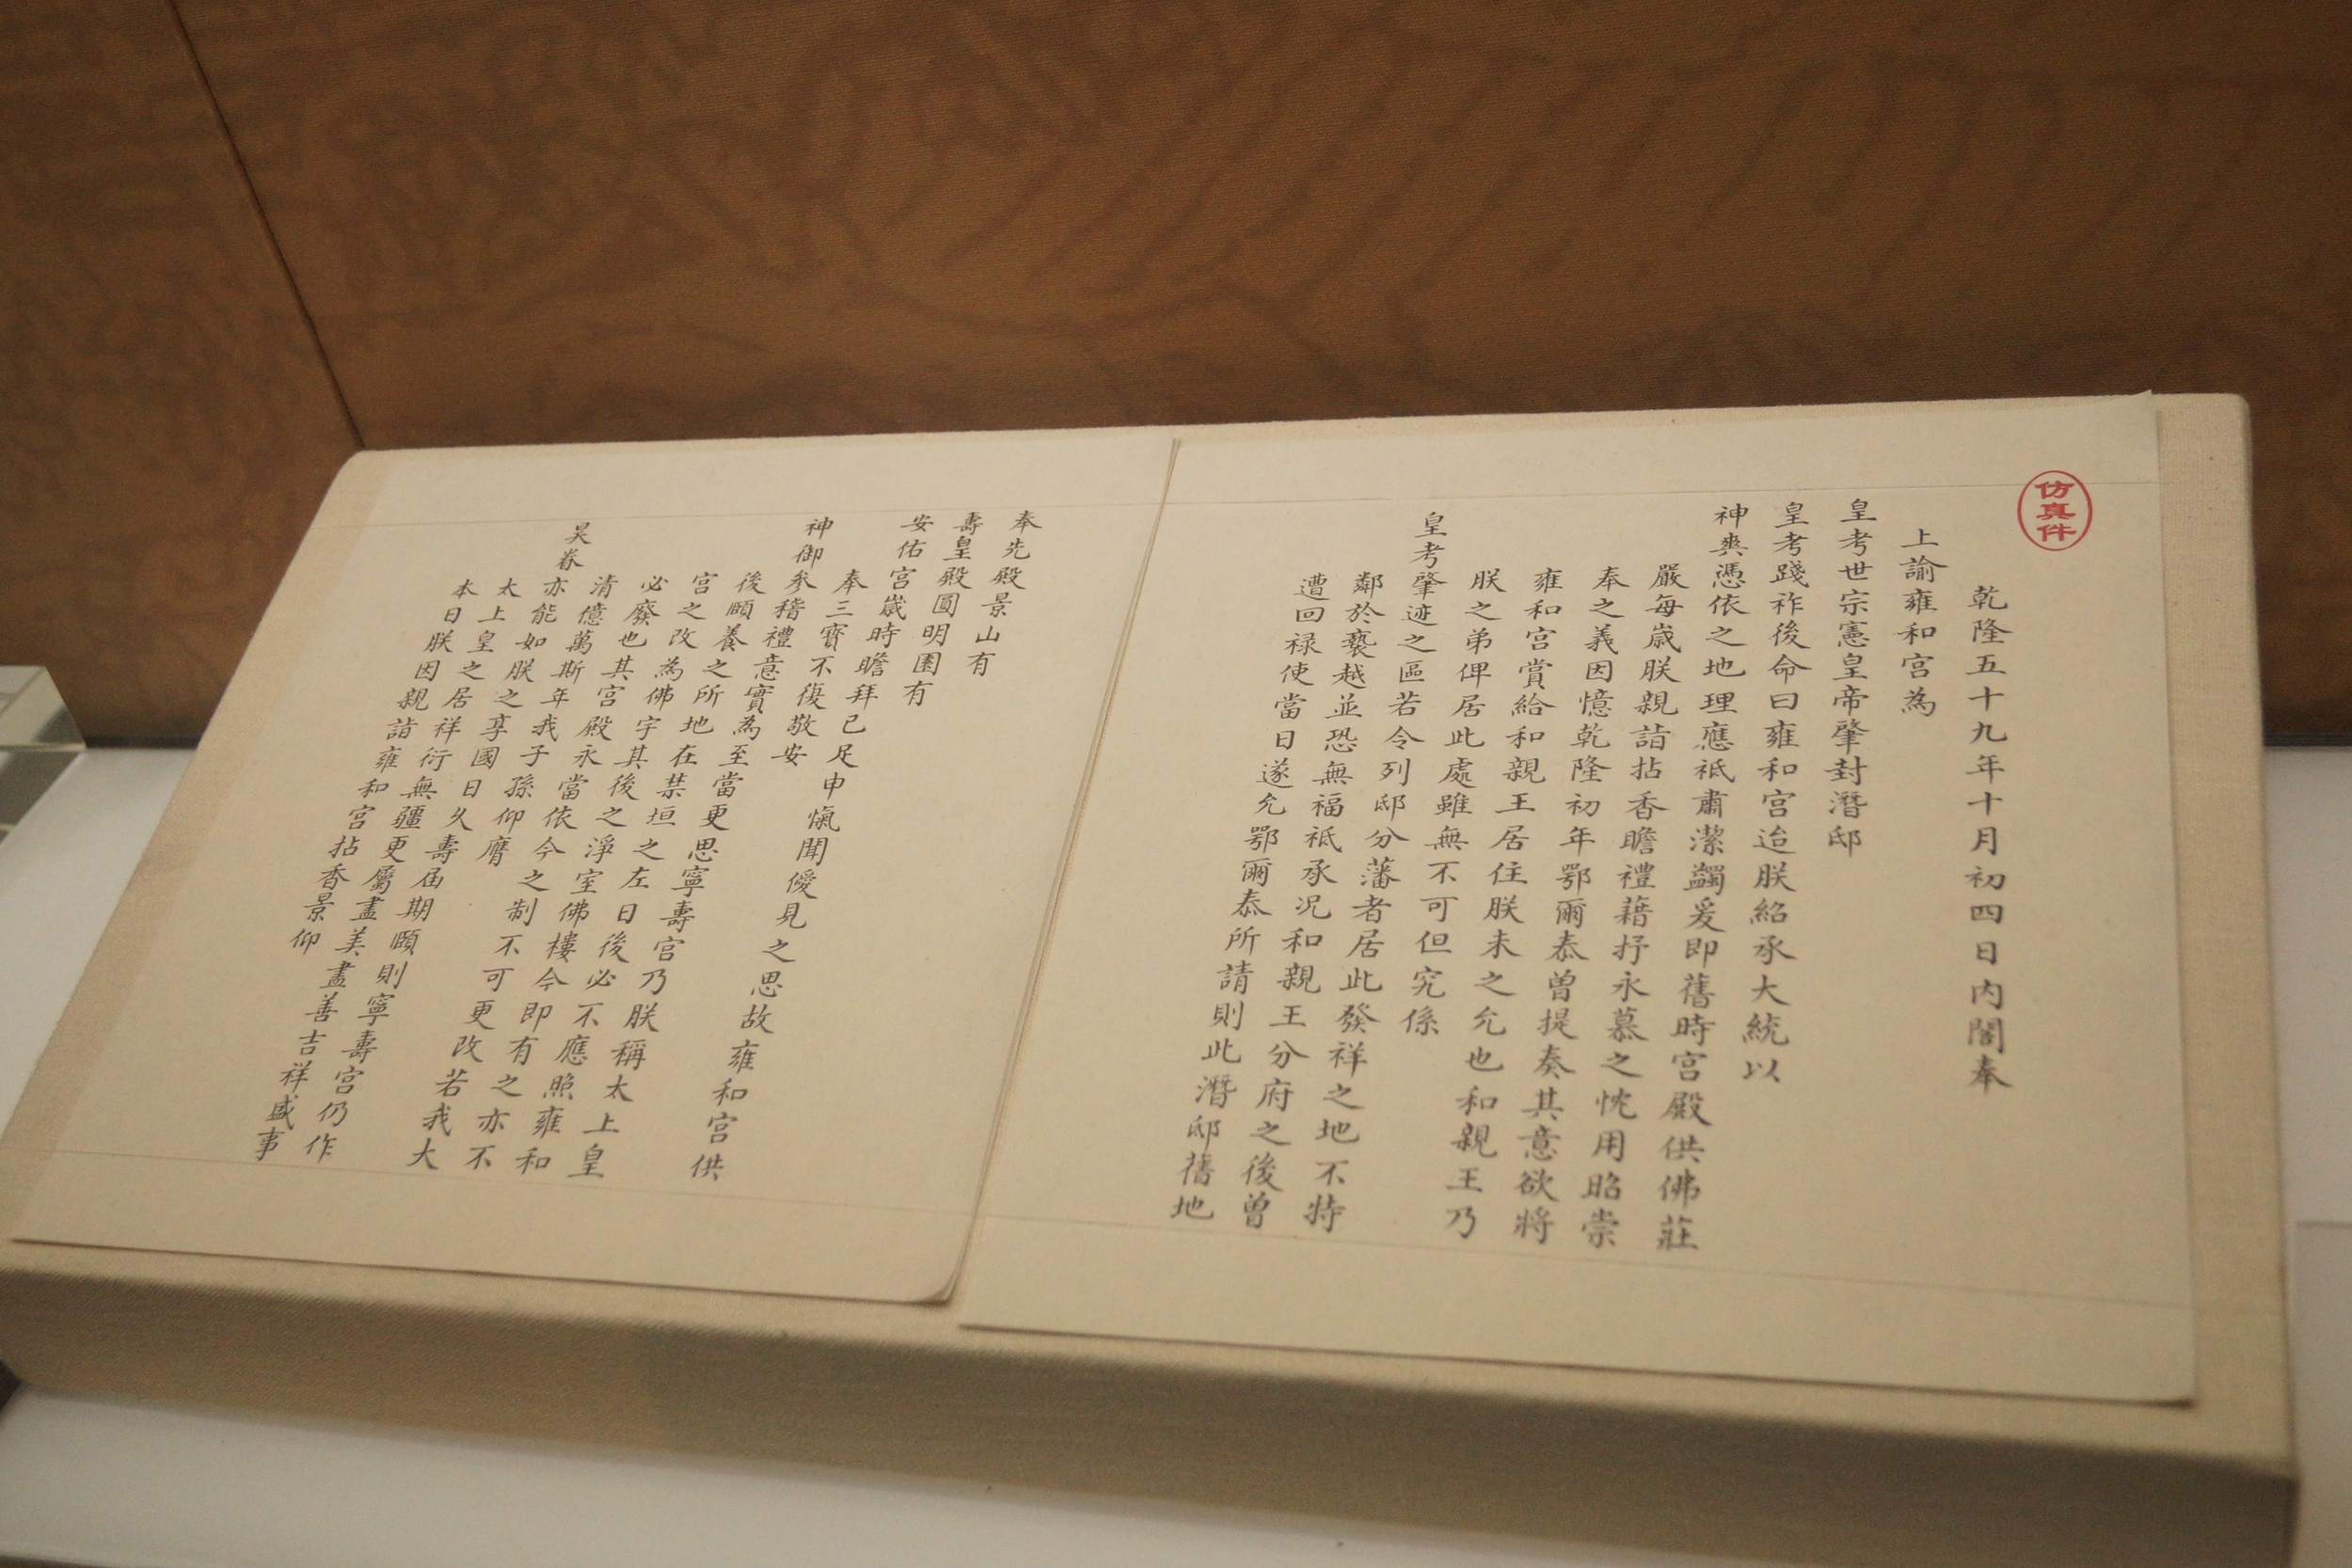 仿真件
乾隆五十九年十月初四日内閣奉
上諭雍和宮為
皇考世宗憲皇帝肇封潛邸
皇考踐祚後命曰雍和宮迨朕紹承大統以
神爽憑依之地理應祗肅潔蠲爰即舊時宮殿供佛莊
嚴每歲朕親詣拈香瞻禮藉抒永慕之忱用昭崇
奉之義因憶乾隆初年鄂爾泰曾提奏其意欲將
雍和宮賞給和親王居住朕未之允也和親王乃
朕之弟俾居此處雖無不可但究係
皇考肇迹之區若令列邸分藩者居此發祥之地不特
鄰於褻越並恐無福祗承况和親王分府之後曾
遭回禄使當日遂允鄂爾泰所請則此潛邸舊地
奉先殿景山有
壽皇殿圓明園有
安佑宮歲時瞻拜已足申愾聞僾見之思故雍和宮供
奉三寶不復敬安
神御參稽禮意實為至當更思寧壽宮乃朕稱太上皇
後頤養之所地在禁垣之左日後必不應照雍和
宮之改為佛宇其後之淨室佛樓今即有之亦不
必廢也其宮殿永當依今之制不可更改若我大
清億萬斯年我子孫仰膺
昊眷亦能如朕之享國日久壽屆期頤則寧壽宮仍作
太上皇之居祥衍無疆更屬盡美盡善吉祥盛事
本日朕因親詣雍和宮拈香景仰